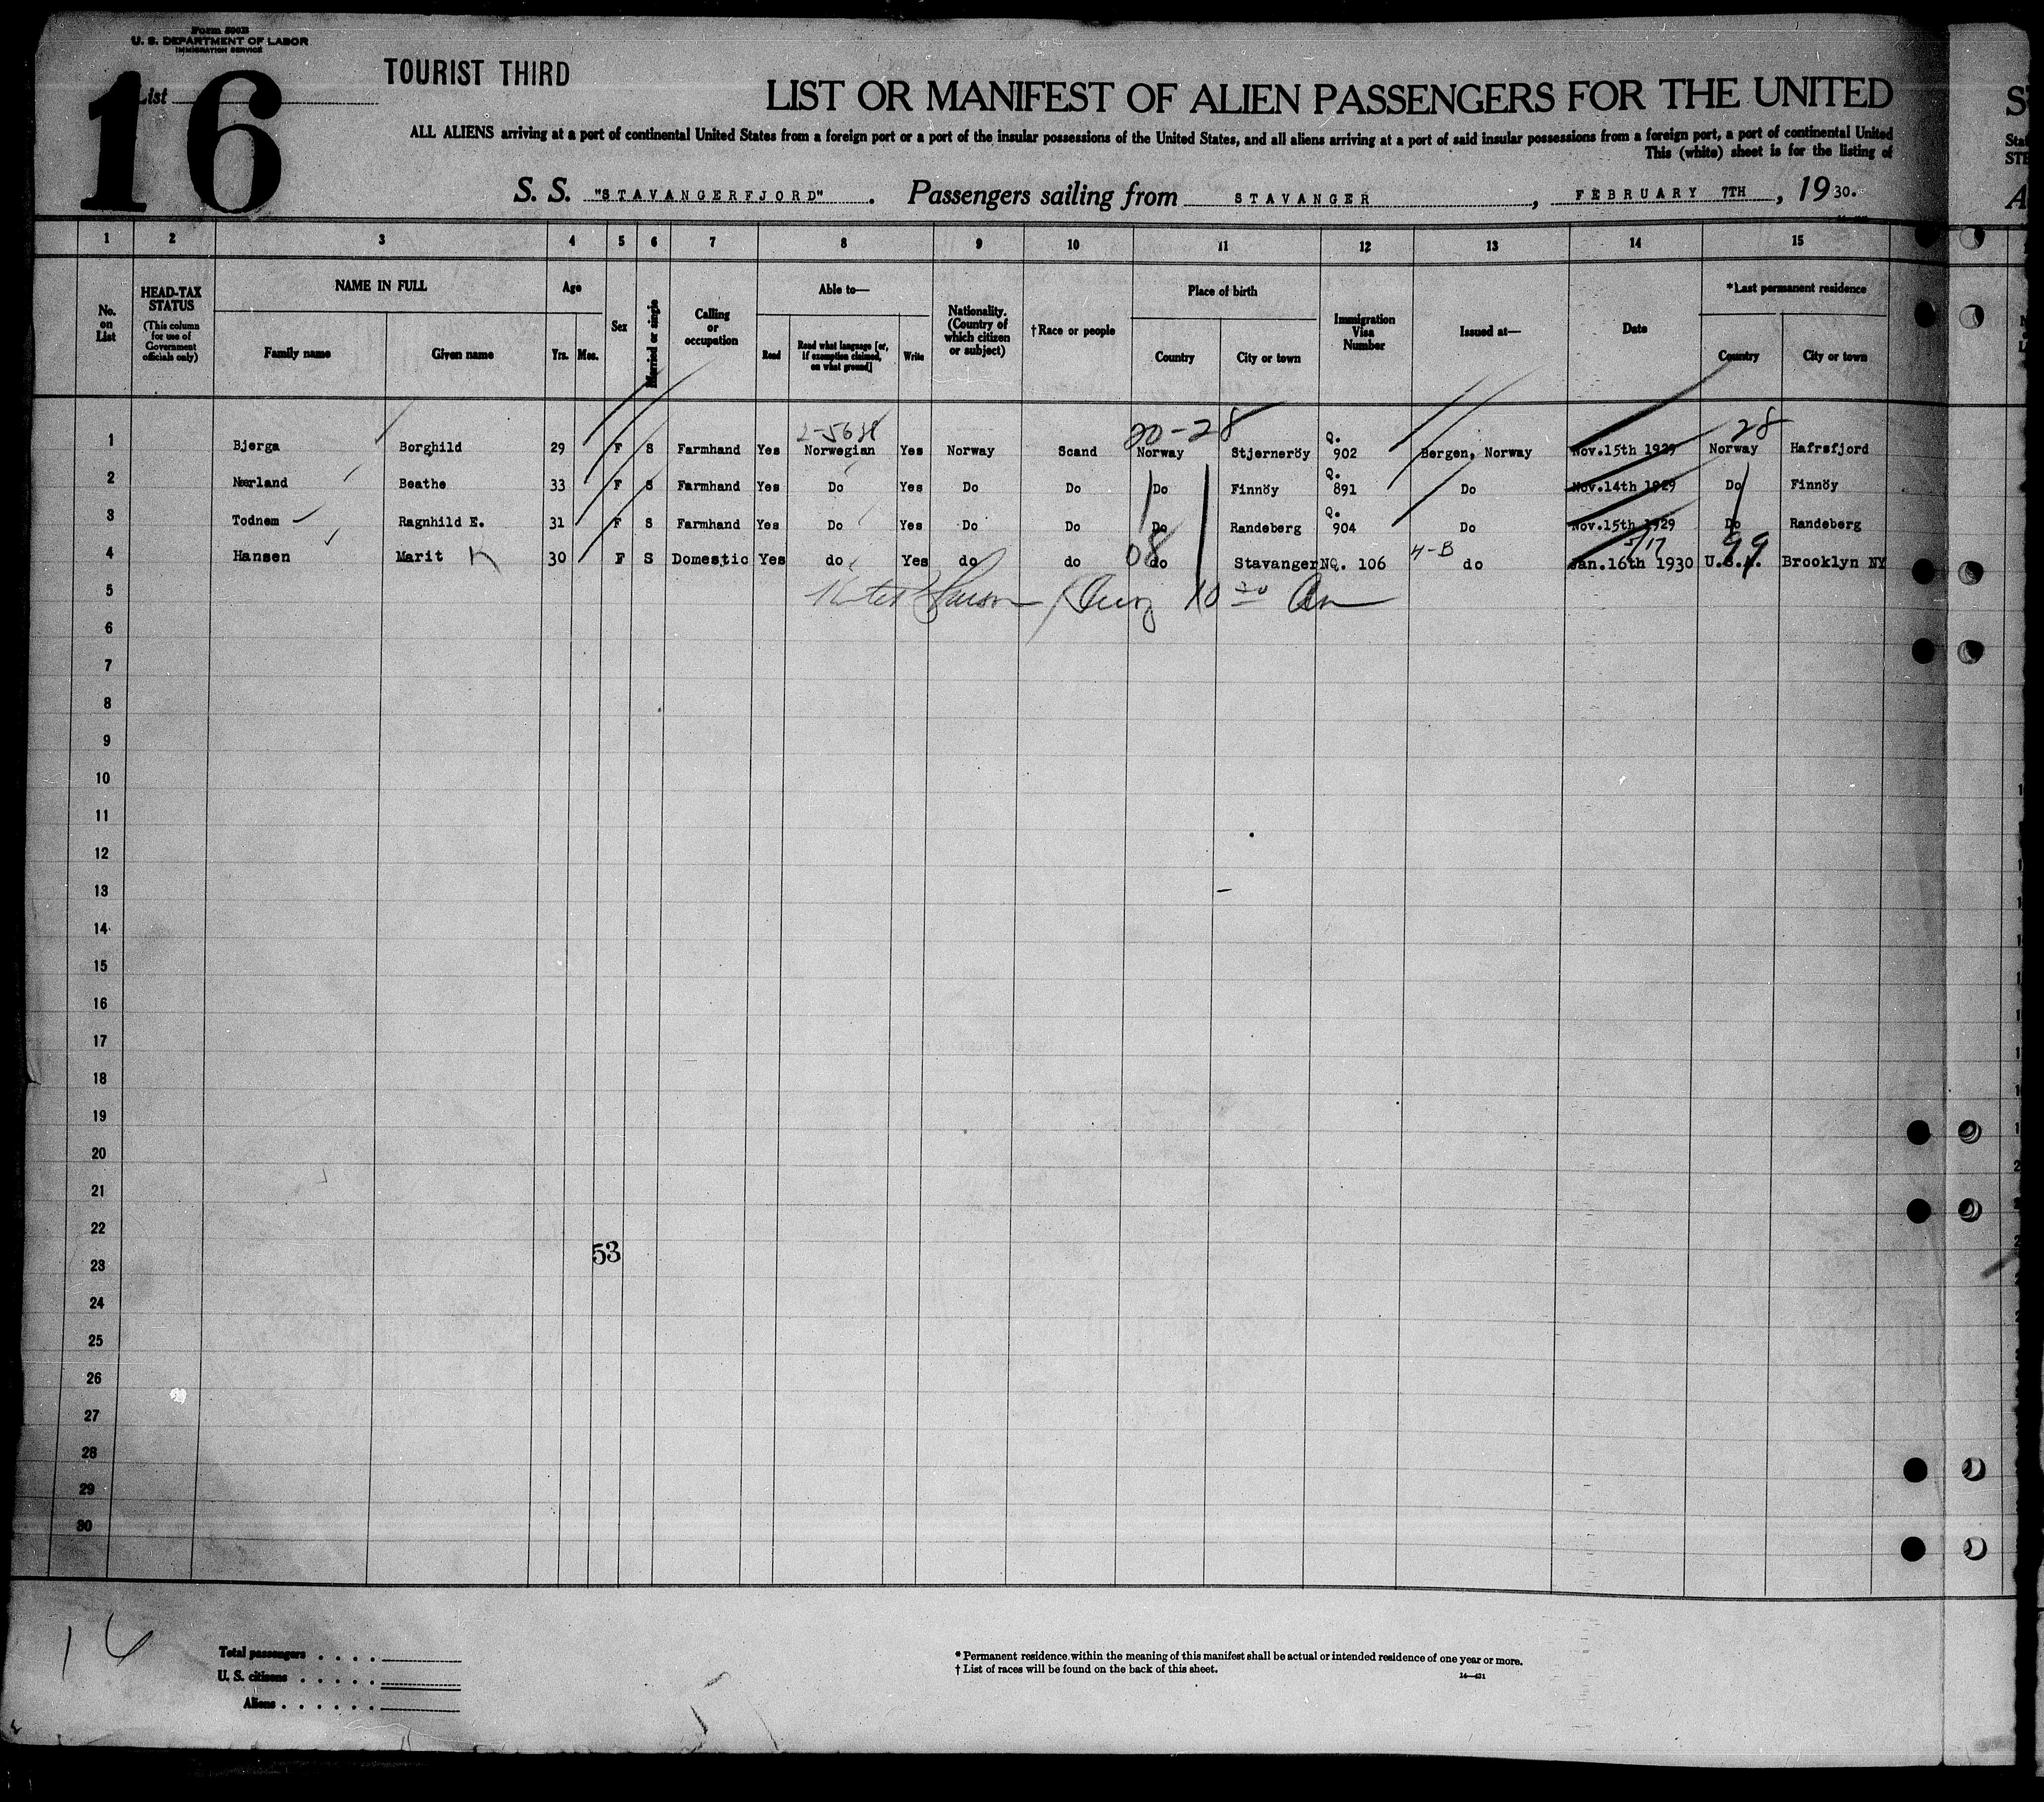 Form 500B
U. S. DEPARTMENT OF LABOR
IMMIGRATION SERVICE
List 16
TOURIST THIRD
LIST OR MANIFEST OF ALIEN PASSENGERS FOR THE UNITED
ALL ALIENS arriving at a port of continental United States from a foreign port or a port of the insular possessions of the United States, and all aliens arriving at a port of said insular possessions from a foreign port, a port of continental United
This (white) sheet is for the listing of
S. S. "STAVANGERFJORD". Passengers sailing from STAVANGER, FEBRUARY 7TH, 1930.
1 2 3 4 5 6 7 8 9 10 11 12 13 14 15
No. on List
HEAD-TAX STATUS (This column for use of Government officials only)
NAME IN FULL Family name Given name
Age Yrs. Mos.
Sex
Married or single
Calling or occupation
Able to— Read Read what language [or, if exemption claimed, on what ground] Write
Nationality. (Country of which citizen or subject)
†Race or people
Place of birth Country City or town
Immigration Visa Number
Issued at—
Date
*Last permanent residence Country City or town
20-28 28
1 Bjerga Borghild 29 F S Farmhand Yes Norwegian Yes Norway Scand Norway Stjerneröy Q. 902 Bergen, Norway Nov.15th 1929 Norway Hafrsfjord
2 Nærland Beathe 33 F S Farmhand Yes Do Yes Do Do Do Finnöy Q. 891 Do Nov.14th 1929 Do Finnöy
3 Todnem Ragnhild E. 31 F S Farmhand Yes Do Yes Do Do Do Randeberg Q. 904 Do Nov.15th 1929 Do Randeberg
08 4-B 99
4 Hansen Marit K 30 F S Domestic Yes do Yes do do do Stavanger NQ. 106 do Jan.16th 1930 U.S.A. Brooklyn NY
5
6
7
8
9
10
11
12
13
14
15
16
17
18
19
20
21
22
53
23
24
25
26
27
28
29
30
16
Total passengers . . . .
U. S. citizens . . . . .
Aliens . . . . . .
* Permanent residence within the meaning of this manifest shall be actual or intended residence of one year or more.
† List of races will be found on the back of this sheet.
14—431